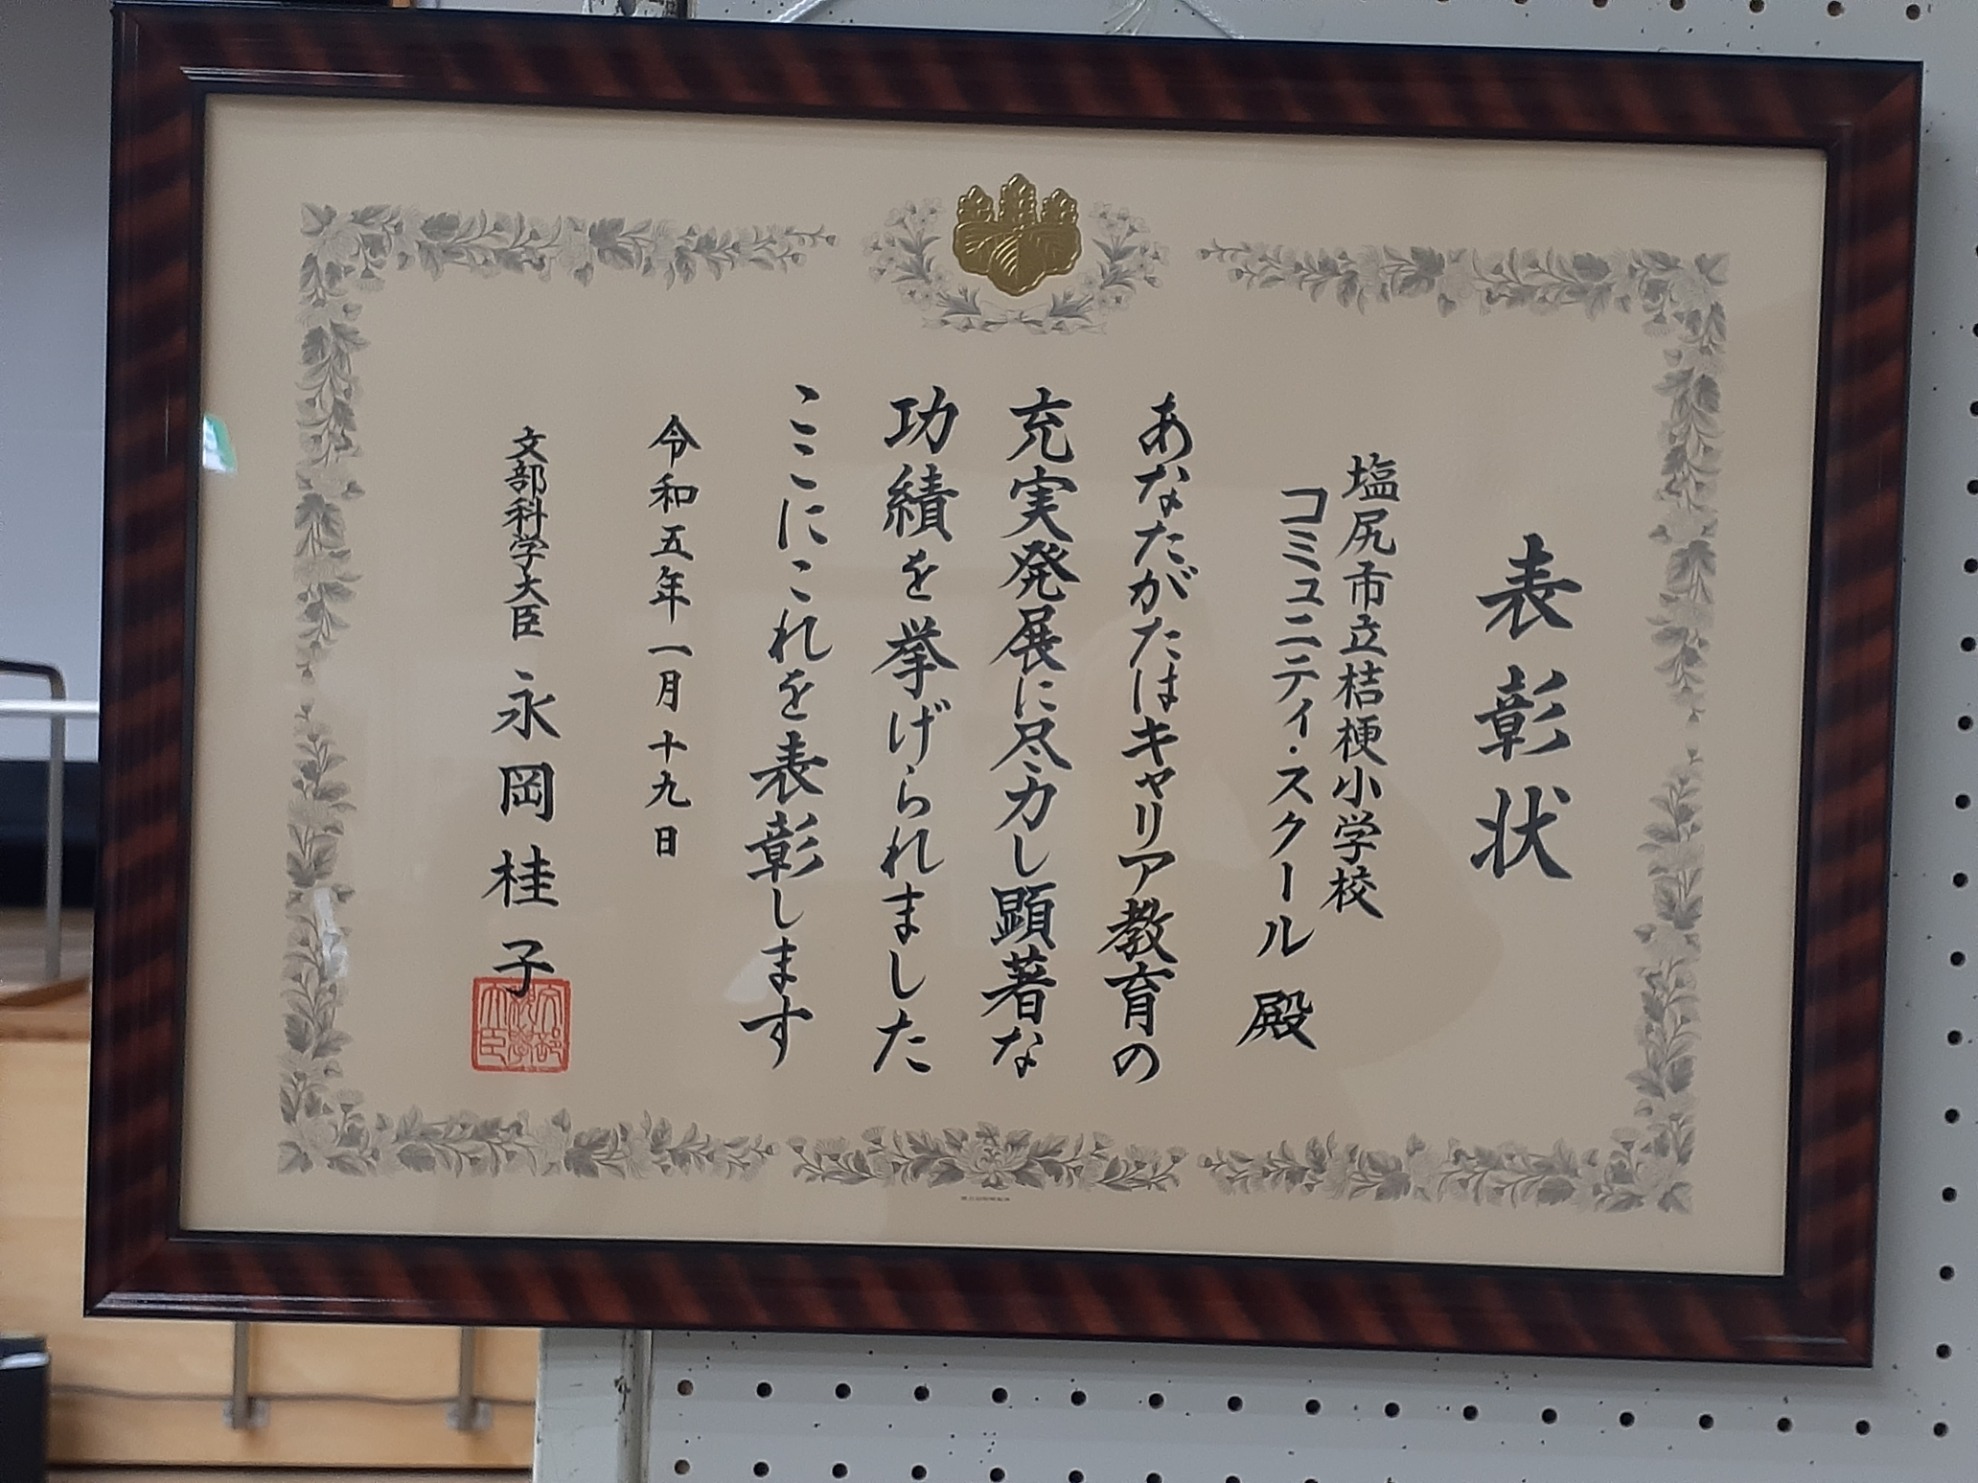 表彰状
塩尻市立桔梗小学校
コミュニティ・スクール 殿
あなたがたはキャリア教育の
充実発展に尽力し顕著な
功績を挙げられました
ここにこれを表彰します
令和五年一月十九日
文部科学大臣 永岡桂子